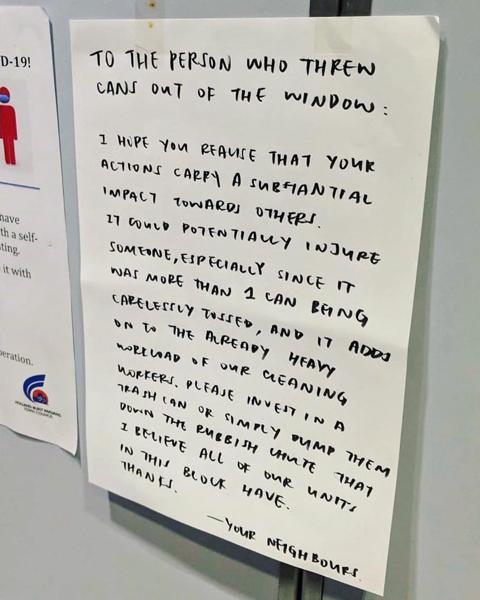 D-19!
have
th a self-
ting.
it with
peration.
HOLLAND-BUKIT PANJANG
TOWN COUNCIL
TO THE PERSON WHO THREW
CANS OUT OF THE WINDOW:
I HOPE YOU REALISE THAT YOUR
ACTIONS CARRY A SUBSTANTIAL
IMPACT TOWARDS OTHERS.
IT COULD POTENTIALLY INJURE
SOMEONE, ESPECIALLY SINCE IT
WAS MORE THAN 1 CAN BEING
CARELESSLY TOSSED, AND IT ADDS
ON TO THE ALREADY HEAVY
WORKLOAD OF OUR CLEANING
WORKERS. PLEASE INVEST IN A
TRASH CAN OR SIMPLY DUMP THEM
DOWN THE RUBBISH CHUTE THAT
I BELIEVE ALL OF OUR UNITS
IN THIS BLOCK HAVE.
THANKS.
—YOUR NEIGHBOURS.